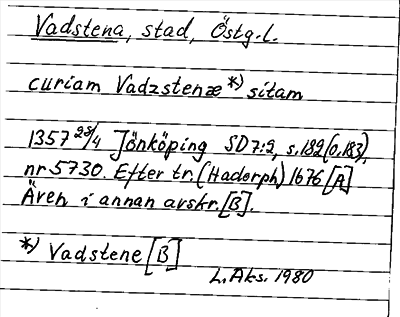 Vadstena, stad, Östg.l.
curiam Vadzstenæ *) sitam
1357 28/4 Jönköping SD7:2, s.182(o.183),
nr 5730. Efter tr. (Hadorph) 1676 [A]
Även i annan avskr. [B].
*) Vadstene [B]
L. Aks. 1980